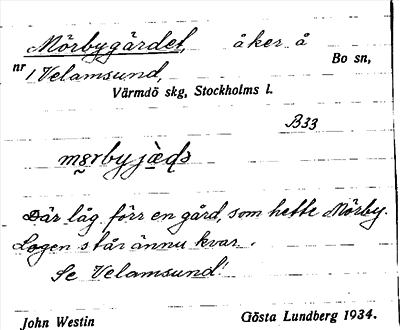 Mörbygärdet, åker å
Bo sn,
nr 1 Velamsund,
Värmdö skg, Stockholms l.
B33
Där låg förr en gård, som hette Mörby.
Logen står ännu kvar.
Se Velamsund
John Westin Gösta Lundberg 1934.